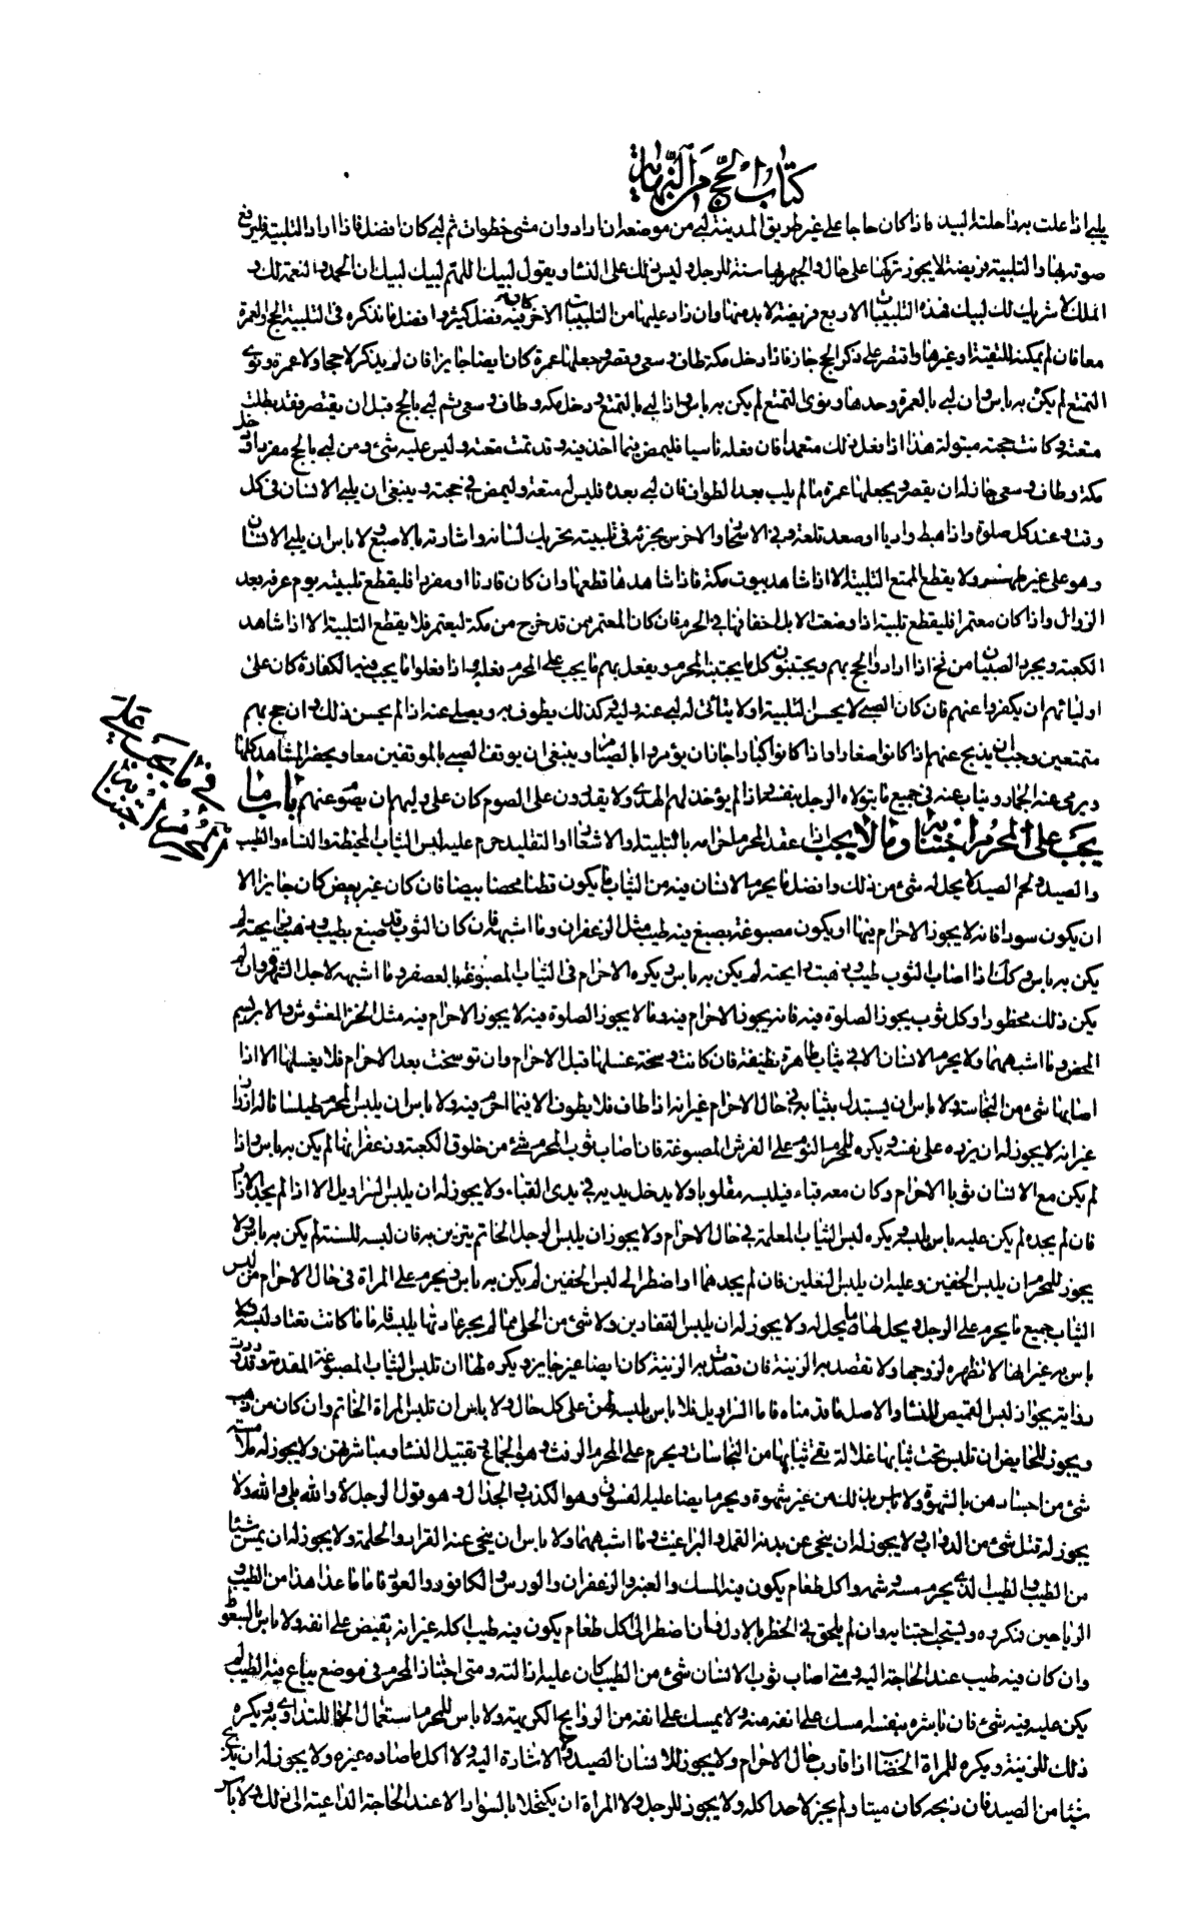 كتاب الحج من النهاية
يلبى اذا علت به راحلته البيداء فاذا كان حاجا على غير طريق المدينة لبى من موضعه ان اراد وان مشى خطوات ثم لبى كان افضل فاذا اراد التلبية فليرفع
صوته بها والتلبية فريضة لا يجوز تركها على حال والجهر بها سنة للرجال وليس ذلك على النساء ويقول لبيك اللهم لبيك لبيك ان الحمد والنعمة لك و
الملك لا شريك لك لبيك هذه التلبيات الاربع فريضة لا بد منها وان زاد عليها من التلبيات الاخر كان فيه فضل كثير وافضل ما نذكره فى التلبية الحج والعمرة
معا فان لم يمكنه للتقية او غيرها واقتصر على ذكر الحج جاز فاذا دخل مكة طاف وسعى وقصر وجعلها عمرة كان ايضا جايزا فان لم يذكر لا حجا ولا عمرة ونوى
التمتع لم يكن به باس وان لبى بالعمرة وحدها ونوى التمتع لم يكن به باس واذا لبى بالتمتع ودخل مكه وطاف وسعى ثم لبى بالحج قبل ان يقصر فقد بطلت
متعته وكانت حجته مبتولة هذا اذا فعل ذلك متعمدا فان فعله ناسيا فليمض فيما اخذ فيه وقد تمت متعته وليس عليه شئ ومن لبى بالحج مفردا ودخل
مكة وطاف وسعى جاز له ان يقصر ويجعلها عمرة ما لم يلب بعد الطواف فان لبى بعده فليس له متعة وليمض فى حجته وينبغى ان يلبى الانسان فى كل
وقت وعند كل صلوة واذا هبط واديا او صعد تلعة وفى الاسحار والاخرس يجزئه فى تلبيته تحريك لسانه واشارته بالاصبع ولا باس ان يلبى الانسان
وهو على غير طهر ولا يقطع المتمتع التلبية الا اذا شاهد بيوت مكة فاذا شاهدها قطعها وان كان قارنا او مفردا فليقطع تلبيته يوم عرفه بعد
الزوال واذا كان معتمرا فليقطع تلبيته اذا وضعت الابل اخفافها فى الحرم فان كان المعتمر ممن قد خرج من مكة ليعتمر فلا يقطع التلبية الا اذا شاهد
الكعبة ويجرد الصبيان من فخ اذا ارادوا الحج بهم ويجتبنون كل ما يجتبنه المحرم ويفعل بهم ما يجب على المحرم فعله واذا فعلوا ما يجب فيه الكفارة كان على
اوليائهم ان يكفروا عنهم فان كان الصبى لا يحسن التلبية او لا يتأتى له لبى عنه وليه وكذلك يطوف به ويصلى عنه اذا لم يحسن ذلك وان حج بهم
متمتعين وجب ان يذبح عنهم اذا كانوا صغارا واذا كانوا كبارا جاز ان يؤمروا بالصيام وينبغى ان يوقف الصبى بالموقفين معا ويحضر المشاهد كلها
ويرمى عنه الجمار ويناب عنه فى جميع ما يتولاه الرجل بنفسه واذا لم يؤخذ لهم الهدى ولا يقدرون على الصوم كان على وليهم ان يصوم عنهم باب ما
يجب على المحرم اجتنابه وما لا يجب اذا عقد المحرم احرامه بالتلبية او الاشعار او التقليد حرم عليه لبس الثياب المخيطة والنساء والطيب
والصيد ولحم الصيد لا يحل له شئ من ذلك وافضل ما يحرم الانسان فيه من الثياب ما يكون قطنا محضا بيضا فان كان غير بيض كان جايزا الا
ان يكون سوداء فانه لا يجوز الاحرام فيها او يكون مصبوغة بصبغ فيه طيب مثل الزعفران وما اشبهه فان كان الثوب قد صبغ بطيب وذهب رايحته لم
يكن به باس وكذا اذا اصاب الثوب طيب وذهبت رايحته لم يكن به باس ويكره الاحرام فى الثياب المصبوغة بالعصفر وما اشبهه لاجل الشهرة وان لم
يكن ذلك محظورا وكل ثوب يجوز الصلوة فيه فانه يجوز الاحرام فيه وما لا يجوز الصلوة فيه لا يجوز الاحرام فيه مثل الخز المغشوش والابريسم
المحض وما اشبههما ولا يحرم الانسان الا فى ثياب طاهرة نظيفة فان كانت وسخة غسلها قبل الاحرام وان توسخت بعد الاحرام فلا يغسلها الا اذا
اصابها شئ من النجاسة ولا باس ان يستبدل بثيابه فى حال الاحرام غير انه اذا طاف فلا يطوف الا فيما احرم فيه ولا باس ان يلبس المحرم طيلسانا له ازرار
غير انه لا يجوز له ان يزره على نفسه ويكره للمحرم النوم على الفرش المصبوغة فان اصاب ثوب المحرم شئ من خلوق الكعبة وزعفرانها لم يكن به باس واذا
لم يكن مع الانسان ثوبا الاحرام وكان معه قباء فليلبسه مقلوبا ولا يدخل يديه فى يدى القباء ولا يجوز له ان يلبس السراويل الا اذا لم يجد الازار
فان لم يجده لم يكن عليه باس بلبسه ويكره لبس الثياب المعلمة فى حال الاحرام ولا يجوز ان يلبس الرجل الخاتم يتزين به فان لبسه للسنة لم يكن به باس ولا
يجوز للمحرم ان يلبس الخفين وعليه ان يلبس النعلين فان لم يجدهما او اضطر الى لبس الخفين لم يكن به باس ويحرم على المراة فى حال الاحرام من لبس
الثياب جميع ما يحرم على الرجل ويحل لها ما يحل له ولا يجوز له ان يلبس القفازين ولا شئ من الحلى مما لم يجر عادتها بلبسه فاما ما كانت تعتاد لبسه فلا
باس به غير انها لا تظهره لزوجها ولا تقصد به الزينة فان قصدت به الزينة كان ايضا غير جايز ويكره لها ان تلبس الثياب المصبوغة المفدمة وقد وردت
رواية بجواز لبس القميص للنساء والاصل ما قدمناه فاما السراويل فلا باس بلبسه لهن على كل حال ولا باس ان تلبس المراة الخاتم وان كان من ذهب
ويجوز للحايض ان تلبس تحت ثيابها غلالة تقى ثيابها من النجاسات ويحرم على المحرم الرفث وهو الجماع وتقبيل النساء ومباشرتهن ولا يجوز له ملامسته
شئ من اجسادهن بالشهوة ولا باس بذلك من غير شهوة ويحرم ايضا عليه الفسوق وهو الكذب والجدال وهو قول الرجل لا والله بلى والله ولا
يجوز له قتل شئ من الدواب ولا يجوز له ان ينحى عن بدنه القمل والبراغيث وما اشبههما ولا باس ان ينحى عنه القراد والحلمة ولا يجوز له ان يمس شيئا
من الطيب والطيب الذى يحرم مسه وشمه واكل طعام يكون فيه المسك والعنبر والزعفران والورس والكافور والعود فاما ما عدا هذا من الطيب و
الرياحين فمكروه ويستحب اجتنابه وان لم يلحق فى الحظر بالاول فان اضطر الى اكل طعام يكون فيه طيب اكله غير انه يقبض على انفه ولا باس بالسعوط
وان كان فيه طيب عند الحاجة اليه ومتى اصاب ثوب الانسان شئ من الطيب كان عليه ازالته ومتى اجتاز المحرم فى موضع يباع فيه الطيب لم
يكن عليه فيه شئ فان باشره بنفسه امسك على انفه منه ولا يمسك على انفه من الروايح الكريهة ولا باس للمحرم استعمال الحنا للتداوى به ويكره
ذلك للزينة ويكره للمراة الخضاب اذا قارب حال الاحرام ولا يجوز للانسان الصيد ولا الاشارة اليه ولا اكل ما صاده غيره ولا يجوز له ان يذبح
شيئا من الصيد فان ذبحه كان ميتا ولم يجز لاحد اكله ولا يجوز للرجل ولا المراة ان يكتحلا بالسواد الا عند الحاجة الداعية الى ذلك ولا باس
فى ما يجب على
المحرم اجتنابه